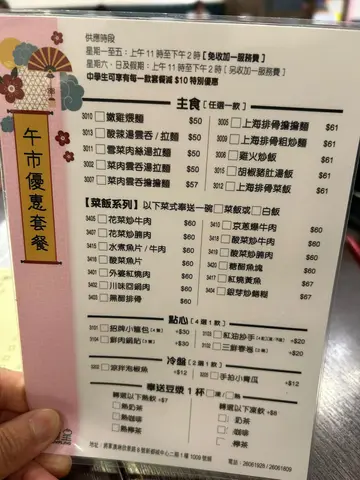 午市優惠套餐
供應時段
星期一至五：上午11時至下午2時 [免收加一服務費]
星期六、日及假期：上午11時至下午2時 [另收加一服務費]
中學生可享有每一款套餐減 $10 特別優惠
主食 [任選一款]
3010 嫩雞煨麵 $50
3009 酸辣湯雲吞/拉麵 $50
3011 雲吞肉絲湯拉麵 $50
3002 菜肉雲吞湯麵 $50
3007 菜肉雲吞擔擔麵 $57
3005 上海排骨擔擔麵 $61
上海排骨粗炒麵 $61
3008 避火炒飯 $61
3015 胡椒豬肚湯飯 $61
3012 上海排骨菜飯 $61
【菜飯系列】以下菜式奉送一碗 菜飯或 白飯
3405 花菜炒牛肉 $60
3407 花菜炒腩肉 $60
3415 水煮魚片/牛肉 $60
3402 酸菜魚片 $60
3401 外婆紅燒肉 $60
川味回鍋肉 $60
3403 黑醋排骨 $60
3410 京蔥爆牛肉 $60
3418 酸菜炒牛肉 $60
3419 酸菜炒腩肉 $60
3420 糖醋魚塊 $60
3417 紅燒黃魚 $67
3404 銀芽炒鱔糊 $67
點心 [4選1款]
3101 招牌小籠包 +$30
3104 鮮肉鍋貼 +$30
3103 紅油抄手 +$20
3102 三鮮春卷 +$20
冷盤 [2選1款]
涼拌泡椒魚 +$12
3205 手拍小青瓜 +$12
奉送豆漿1杯 凍/ 熱
轉選以下熱飲 +$7
熱奶茶
熱咖啡
熱檸茶
轉選以下凍飲 +$8
奶茶
咖啡
檸茶
電話：26061928 / 26061809